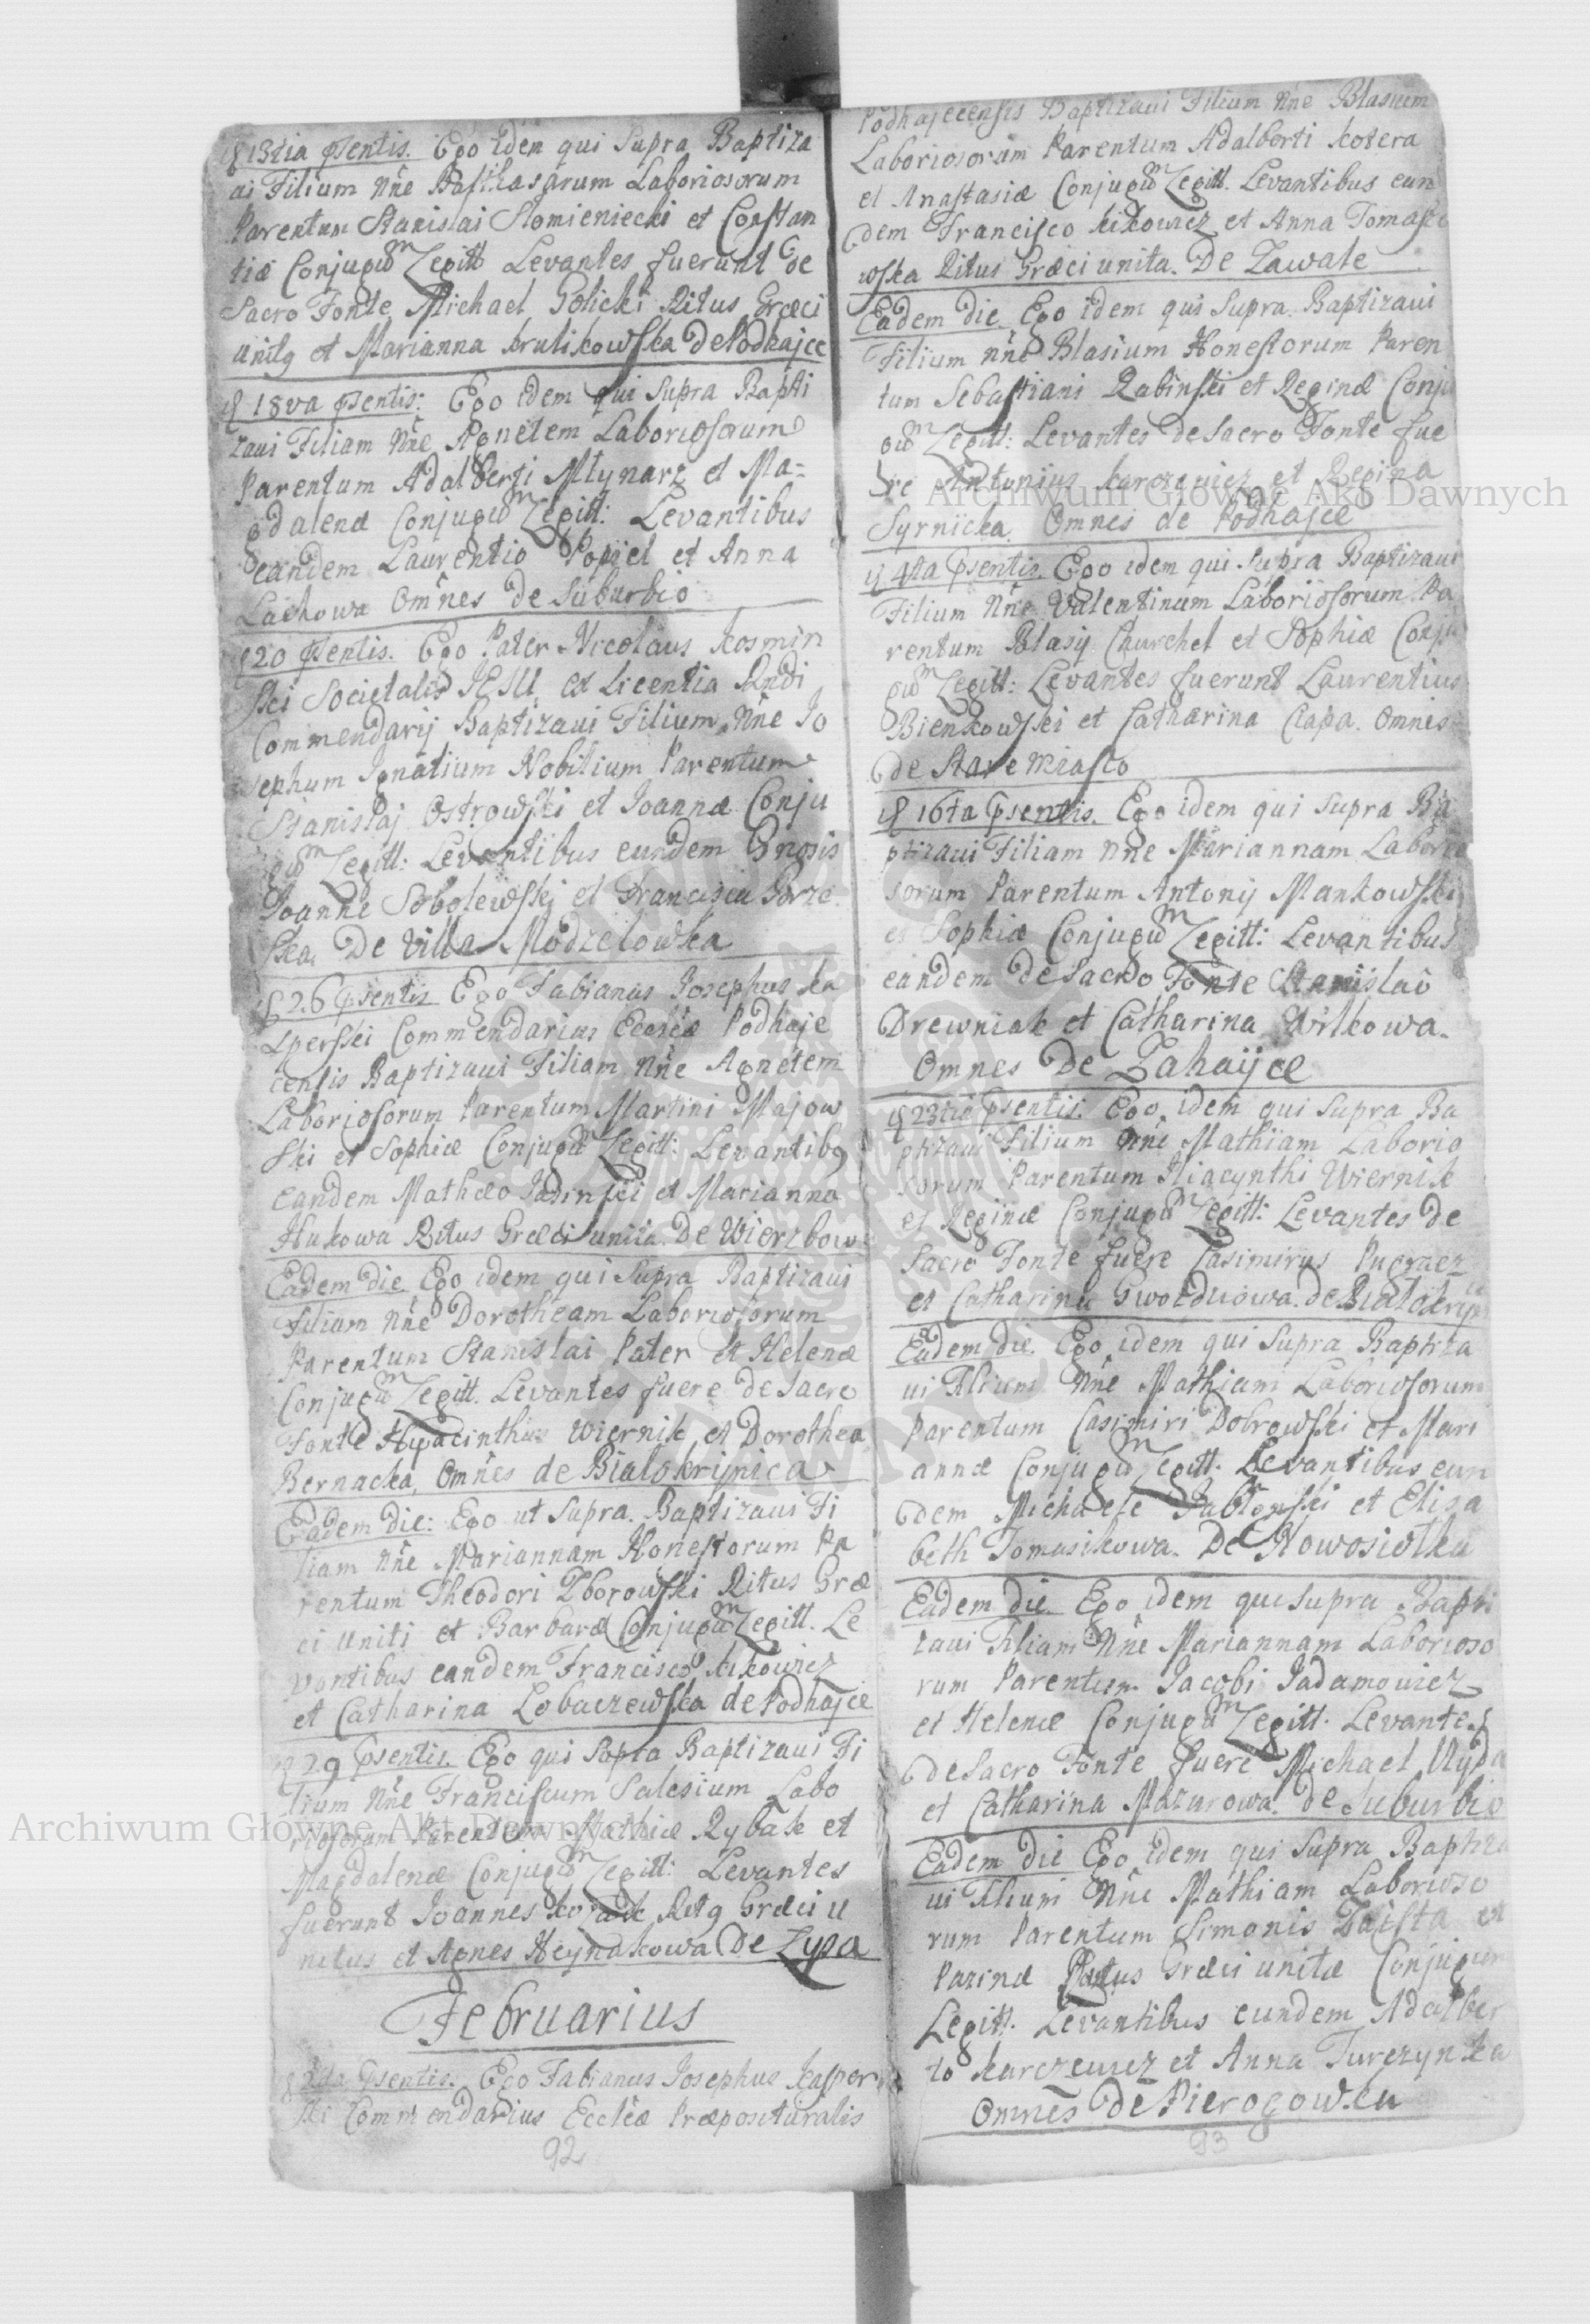 13tia psentis. Ego idem qui Supra Baptiza
ui Filium Nne Balthasarum Laboriosorum
Parentum Stanislai Slomieniecki et Constan
tiæ Conjugum Legitt Levantes fuerunt de
Sacro Fonte Michael Golicki Ritus Græci
unitg et Marianna krulikowska de Podhajce
18va psentis: Ego idem qui Supra Bapti
zaui Filiam Nne Agnetem Laboriosorum
Parentum Adalberti Młynarz et Ma=
gdalenæ Conjugum Legitt: Levantibus
eandem Laurentio Popiel et Anna
Laskowa Omnes de Suburbio
20 psentis. Ego Pater Nicolaus kosmin
ski Societatis JESU ex Licentia Rndi
Commendarij Baptizaui Filium Nne Jo
sephum Ignatium Nobilium Parentum
Stanislaj Ostrowski et Joannæ Conju
gum Legitt: Levantibus eundem Gnosis
Joanne Sobolewski et Francisca
ska De Villa Modzelowka
26 psentis Ego Fabianus Josephus ka
sperski Commendarius Eccleæ Podhaje
censis Baptizaui Filiam Nne Agnetem
Laboriosorum Parentum Martini Majow
ski et Sophiæ Conjugum Legitt: Levantibg
eandem Mathæo Jadinski et Marianna
Hukowa Ritus Græci unita. De Wierzbow
Eadem die Ego idem qui Supra Baptizaui
Filiam Nne Dorotheam Laboriosorum
Parentum Stanislai Pater et Helenæ
Conjugum Legitt. Levantes fuere de Sacro
Fonte Hyacinthus Wiernik et Dorothea
Bernacka, Omnes de Bialokrijnica
Eadem die: Ego ut Supra. Baptizaui Fi
liam Nne Mariannam Honestorum Pa
rentum Theodori Zborowski Ritus Græ
ci Uniti et Barbaræ Conjugum Legitt. Le
vantibus eandem Francisco kikowicz
et Catharina Lobaczewska de Podhajce
29 psentis. Ego qui Supra Baptizaui Fi
lium Nne Franciscum Salesium Labo
riosorum Parentum Mathiæ Rybak et
Magdalenæ Conjugum Legitt: Levantes
fuerunt Joannes Ritg Græci u
nitus et Agnes Heynakowa De Lysa
Februarius
2da psentis. Ego Fabianus Josephus kasper
ski Commendarius Eccleæ Præposituralis
92
Podhajecensis Baptizaui Filium Nne Blasium
Laboriosorum Parentum Adalberti kotera
et Anastasiæ Conjugum Legitt. Levantibus eun
dem Francisco kikowicz et Anna Tomasze
wska Ritus Græci unita. De Zawale
Eadem die Ego idem qui Supra. Baptizaui
Filium Nne Blasium Honestorum Paren
tum Sebastiani Rabinski et Reginæ Conju
gum Legitt: Levantes de Sacro Fonte fue
re Antonius karczewicz et Regina
Syrnicka. Omnes de Podhajce
4ta psentis. Ego idem qui Supra Baptizaui
Filium Nne Valentinum Laboriosorum Pa
rentum Blasij Churchel et Sophiæ Conju
gum Legitt: Levantes fuerunt Laurentius
Bienkowski et Catharina Czapa. Omnes
de Stare Miasto
16ta psentis. Ego idem qui Supra Ba
ptizaui Filiam Nne Mariannam Laborio
sorum Parentum Antonij Mankowski
et Sophiæ Conjugum Legitt: Levantibus
eandem de Sacro Fonte Stanislao
Drewniak et Catharina Wilkowa.
Omnes De Zahaijce
23tia psentis. Ego idem qui Supra Ba
ptizaui Filium Nne Mathiam Laborio
sorum Parentum Hiacynthi Wiernik
et Reginæ Conjugum Legitt: Levantes de
Sacro Fonte fuere Casimirus Pugacz
et Catharina Gwozdziowa. de Bialokryn
Eadem die. Ego idem qui Supra Baptiza
ui Filium Nne Mathiam Laboriosorum
Parentum Casimiri Dobrowski et Mari
annæ Conjugum Legitt. Levantibus eun
dem Michaele Jablonski et Elisa
beth Tomasikowa. De Nowosiolka
Eadem die Ego idem qui Supra Bapti
zaui Filiam Nne Mariannam Laborioso
rum Parentum Jacobi Jadamowicz
et Helenæ Conjugum Legitt. Levantes
de Sacro Fonte fuere Michael Uyda
et Catharina Mazurowa. de Suburbio
Eadem die Ego idem qui Supra Baptiza
ui Filium Nne Mathiam Laborioso
rum Parentum Simonis Zaista et
Pazinæ Ritus Græci unitæ Conjugum
Legitt. Levantibus eundem Adalber
to karczewicz et Anna Turczynska
Omnes de Pierogowku
93
Archiwum Główne Akt Dawnych
Archiwum Główne Akt Dawnych